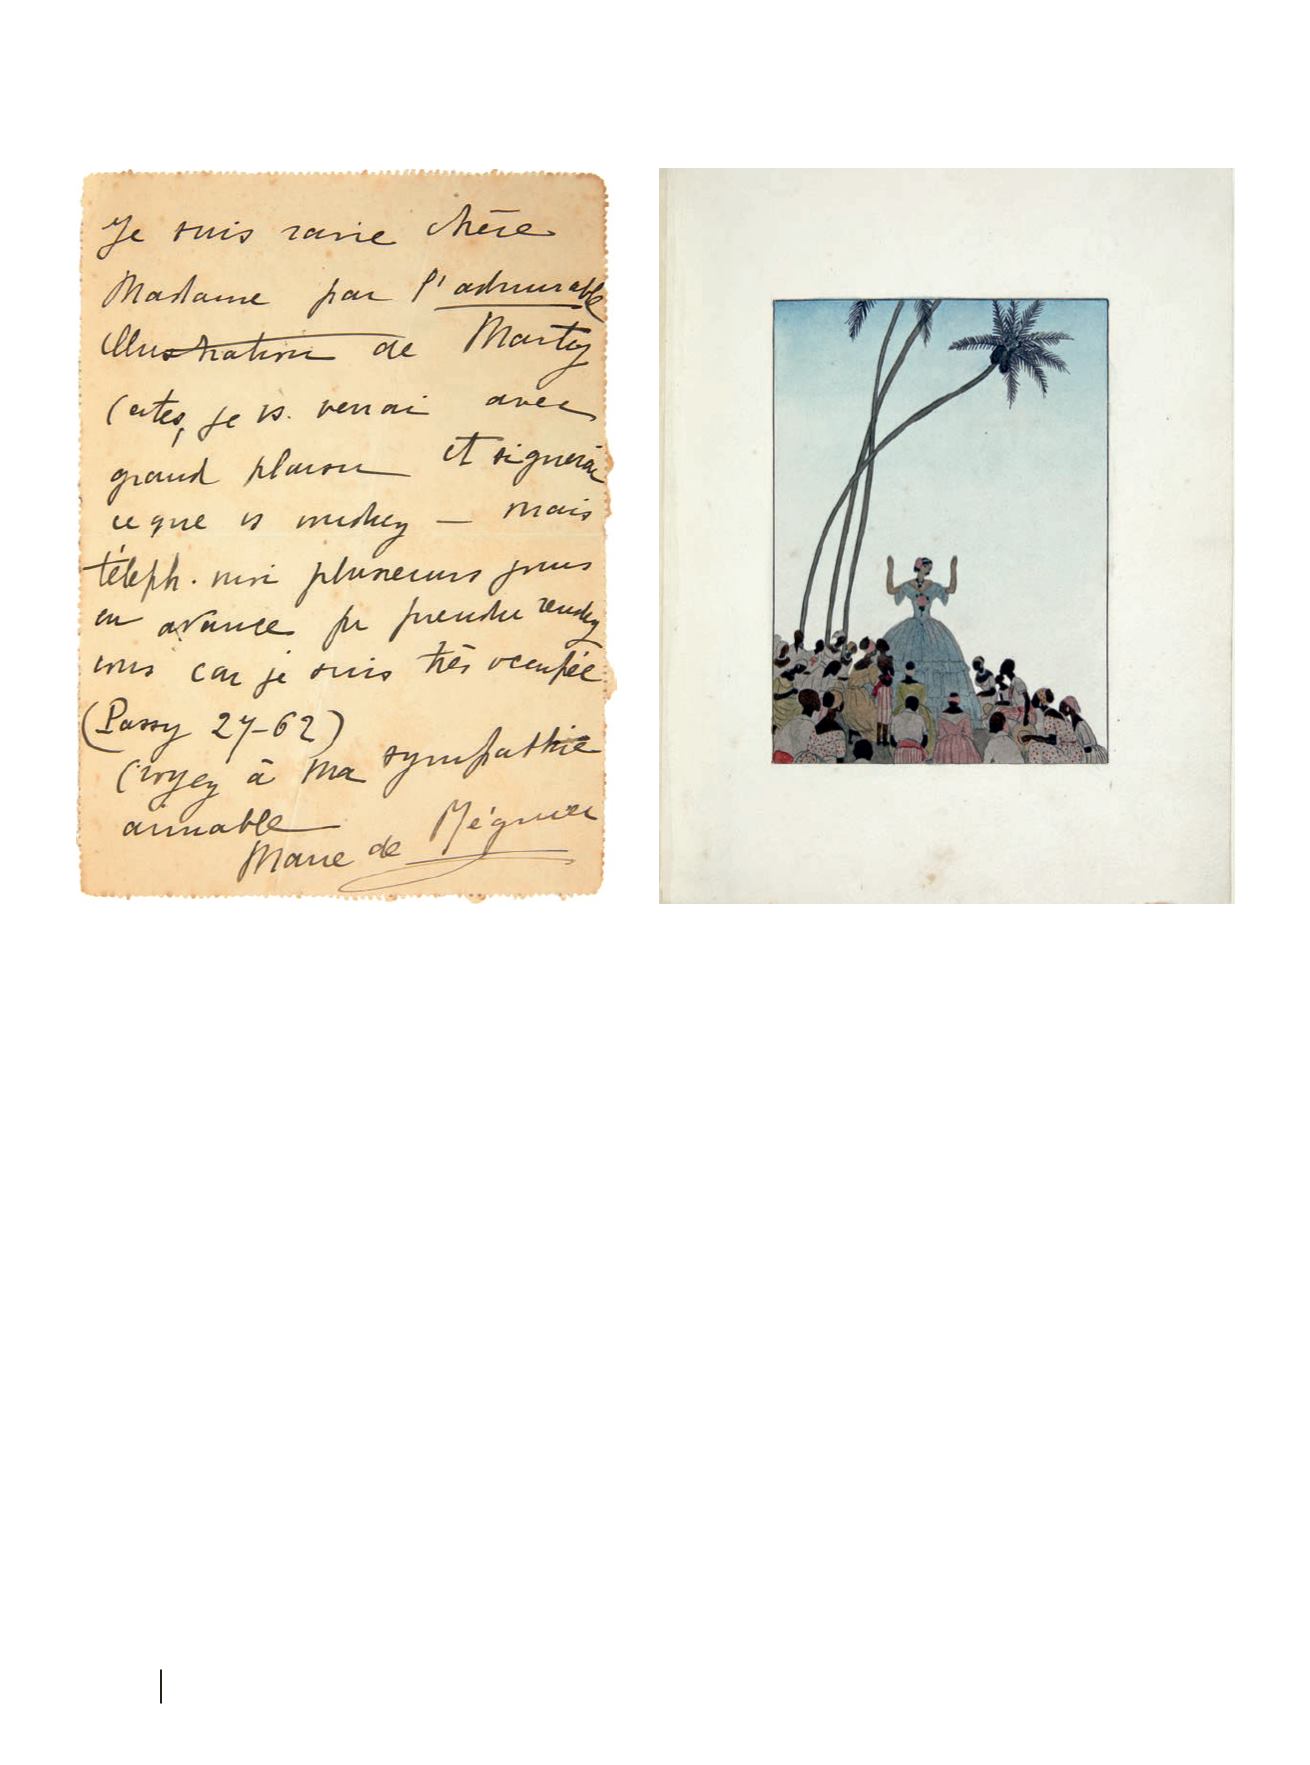 Je suis ravie chère
Madame par l'admirable
illustration de Marty
Certes, je vs. verrai avec
grand plaisir et signerai
ce que vs voudrez — mais
téléph. moi plusieurs jours
en avance pr prendre rendez
vous car je suis très occupée
(Passy 27-62)
Croyez à ma sympathie
aimable
Marie de Régnier